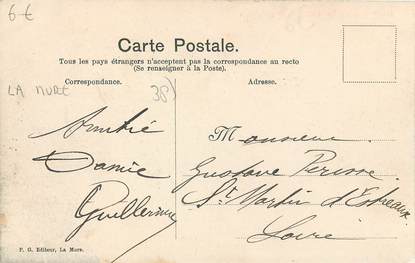 6€
Carte Postale.
Tous les pays étrangers n'acceptent pas la correspondance au recto
(Se renseigner à la Poste).
Correspondance.
Adresse.
LA MURE
38)
Amitié
Damie
Guillermin
Monsieur
Gustave Perisse
St Martin d'Estreaux
Loire
P. G. Editeur, La Mure.